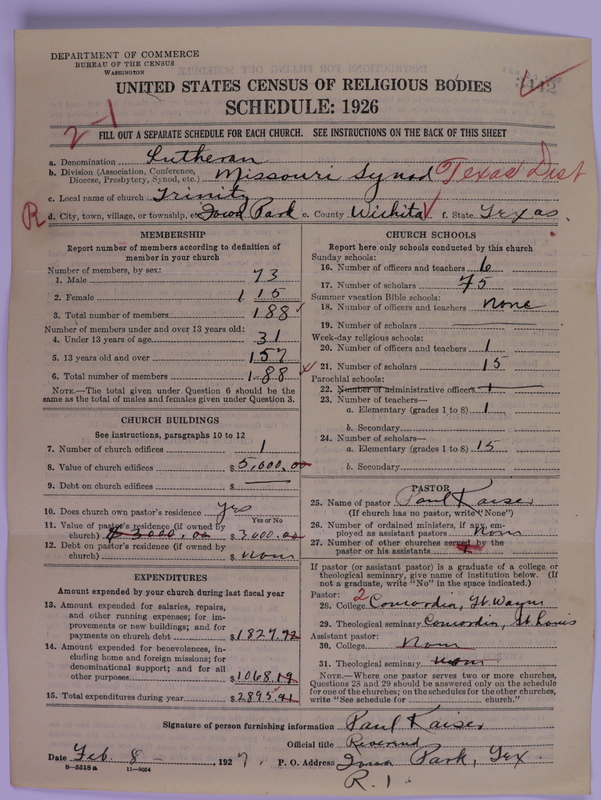 DEPARTMENT OF COMMERCE
BUREAU OF THE CENSUS
WASHINGTON
UNITED STATES CENSUS OF RELIGIOUS BODIES
SCHEDULE: 1926
2-1
FILL OUT A SEPARATE SCHEDULE FOR EACH CHURCH. SEE INSTRUCTIONS ON THE BACK OF THIS SHEET
a. Denomination Lutheran
b. Division (Association, Conference, Diocese, Presbytery, Synod, etc.) Missouri Synod Texas Dist
c. Local name of church Trinity
R d. City, town, village, or township, etc. Iowa Park e. County Wichita f. State Texas.
MEMBERSHIP
Report number of members according to definition of
member in your church
Number of members, by sex:
1. Male 73
2. Female 115
3. Total number of members 188
Number of members under and over 13 years old:
4. Under 13 years of age 31
5. 13 years old and over 157
6. Total number of members 188
NOTE.—The total given under Question 6 should be the
same as the total of males and females given under Question 3.
CHURCH BUILDINGS
See instructions, paragraphs 10 to 12
7. Number of church edifices 1
8. Value of church edifices $5,000.00
9. Debt on church edifices $ —
10. Does church own pastor's residence yes
Yes or No
11. Value of pastor's residence (if owned by
church) $3000.00 $3,000.00
12. Debt on pastor's residence (if owned by
church) $ none
EXPENDITURES
Amount expended by your church during last fiscal year
13. Amount expended for salaries, repairs,
and other running expenses; for im-
provements or new buildings; and for
payments on church debt $1827.22
14. Amount expended for benevolences, in-
cluding home and foreign missions; for
denominational support; and for all
other purposes $1068.19
15. Total expenditures during year $2895.41
CHURCH SCHOOLS
Report here only schools conducted by this church
Sunday schools:
16. Number of officers and teachers 6
17. Number of scholars 75
Summer vacation Bible schools:
18. Number of officers and teachers none
19. Number of scholars —
Week-day religious schools:
20. Number of officers and teachers 1
21. Number of scholars 15
Parochial schools:
22. Number of administrative officers 1
23. Number of teachers—
a. Elementary (grades 1 to 8) 1
b. Secondary
24. Number of scholars—
a. Elementary (grades 1 to 8) 15
b. Secondary
PASTOR
25. Name of pastor Paul Kaiser
(If church has no pastor, write "None")
26. Number of ordained ministers, if any, em-
ployed as assistant pastors None
27. Number of other churches served by the
pastor or his assistants
If pastor (or assistant pastor) is a graduate of a college or
theological seminary, give name of institution below. (If
not a graduate, write "No" in the space indicated.)
Pastor: 2
28. College Concordia, Ft. Wayne
29. Theological seminary Concordia, St Louis
Assistant pastor:
30. College None
31. Theological seminary none
NOTE.—Where one pastor serves two or more churches,
Questions 28 and 29 should be answered only on the schedule
for one of the churches; on the schedules for the other churches,
write "See schedule for church."
Signature of person furnishing information Paul Kaiser
Official title Reverend
Date Feb. 8 -, 1927. P. O. Address Iowa Park, Tex.
8-5518a 11-9664
R. 1.